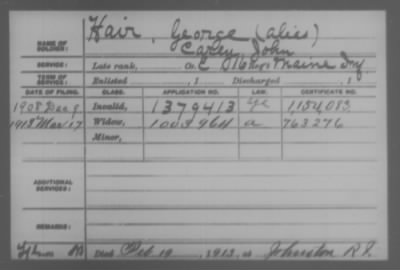 Hair, George (alias)
NAME OF SOLDIER: Carey, John
SERVICE: Late rank, Co. C 16 Reg't Maine Inf.
TERM OF SERVICE: Enlisted , 1 Discharged , 1
DATE OF FILING. CLASS. APPLICATION NO. LAW. CERTIFICATE NO.
1908 Dec 9 Invalid, 1379413 1,154,083
1913 Mar 17 Widow, 1003964 a 763276
Minor,
ADDITIONAL SERVICES:
REMARKS:
Died Feb 19, 1913, at Johnston R.I.